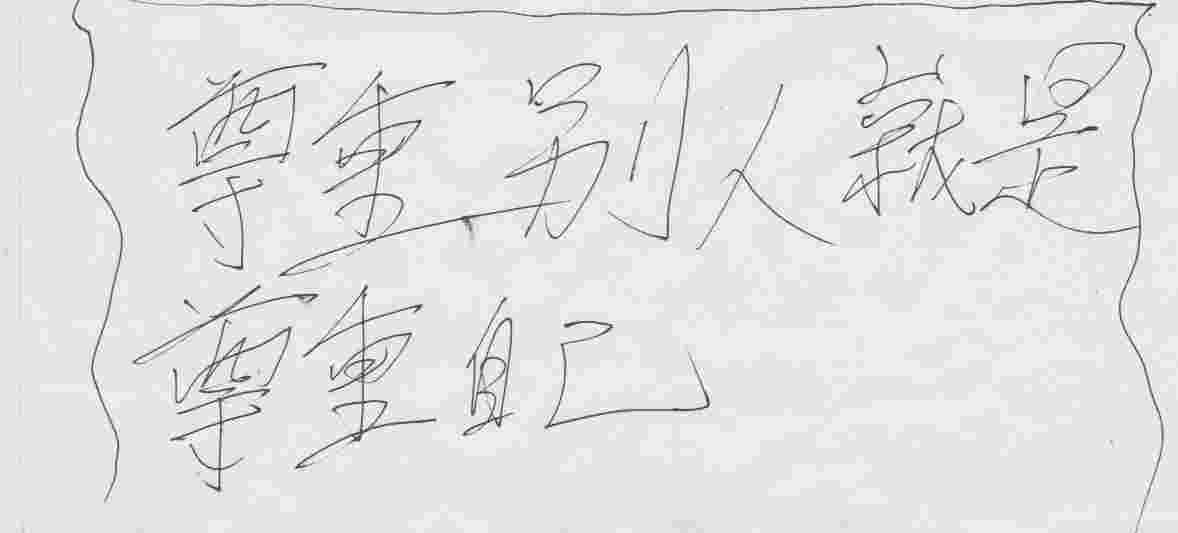 尊重别人就是
尊重自己